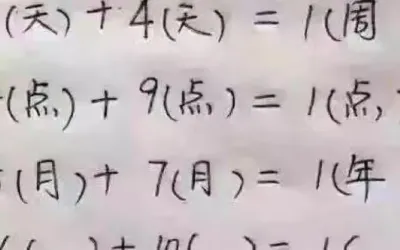 (天) + 4(天) = 1(周
(点) + 9(点) = 1(点,
(月) + 7(月) = 1(年